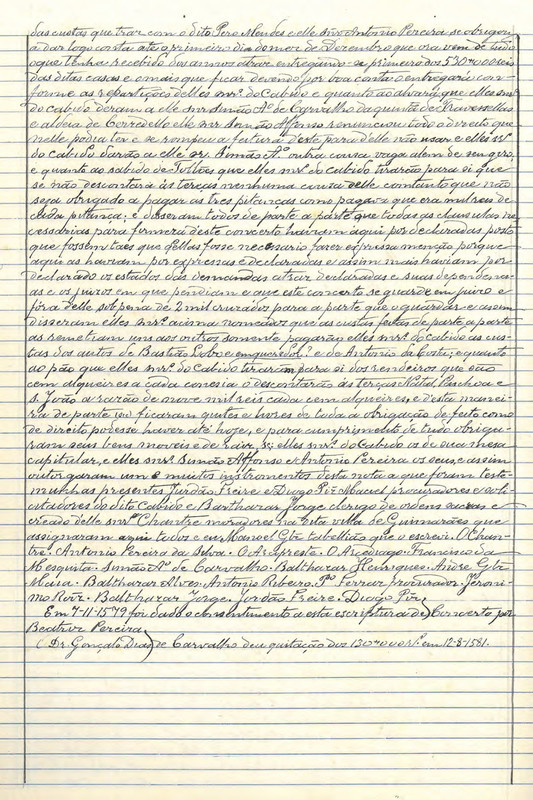 das custas que traz com o dito Pero Mendes e elle snr Antonio Pereira se obrigou
a dar logo conta até o primeiro dia do mez de Dezembro que ora vem de tudo
o que tenha recebido dos annos atraz entregando-se primeiro dos 530$000 reis
das ditas casas e o mais que ficar devendo por boa conta o entregará con-
forme as repartições delles snrs do Cabido e quanto ao alvará que elles snrs
do cabido deram a elle snr Simão Aº de Carvalho da quinta de Travessellas
e aldeia de Corredello elle snr Simão Affonso renunciou todo o direito que
nelle podia ter e se rompeu a feitura deste para delle não usar e elles snrs
do cabido darão a elle sr. Simão Aº outra cousa vaga alem de seu gro,
e quanto ao sabido de Tolhães que elles snrs do cabido tirarão para si que
se não descontará ás terças nenhuma cousa delle comtanto que não
seja obrigado a pagar as tres pitanças como pagava que era mil reis de
cada pitança; e disseram todos de parte a parte que todas as clausulas ne-
cessarias para firmeza deste concerto haviam aqui por declaradas posto
que fossem taes que dellas fosse necessario fazer expressa menção porque
aqui as haviam por expressas e declaradas e assim mais haviam por
declarado os estados das demandas atraz declaradas e suas dependenci-
as e os juizos em que pendiam e que este concerto se guarde em juizo e
fóra delle sob pena de 2 mil cruzados para a parte que o guardar e assim
disseram elles snrs acima nomeados que as custas feitas de parte a parte
as remetiam uns aos outros somente pagarão elles snrs do cabido as cus-
tas dos autos de Bastião Lobo e enqueridor e de Antonio da Costa; e quanto
ao pão que elles snrs do Cabido tiraram para si dos rendeiros que são
cem alqueires a cada conesia o descontarão ás terças Natal, Paschoa e
S. João a razão de nove mil reis cada cem alqueires, e desta manei-
ra de parte ficaram quites e livres de toda a obrigação de feito como
de direito podesse haver até hoje, e para cumprimento de tudo obriga-
ram seus bens moveis e de raiz, se, elles snrs do Cabido os de sua mesa
capitular, e elles snrs Simão Affonso e Antonio Pereira os seus, e assim
outorgaram um e muitos instromentos desta nota a que foram teste-
munhas presentes Jurdão Freire e Diogo Piz Maciel procuradores e soli-
citadores do dito Cabido e Balthazar Jorge clerigo de ordens sacras e
criado delle snr Chantre moradores na dita villa de Guimarães que
assignaram aqui todos e eu Manoel Glz tabellião que o escrevi. O Chan-
tre. Antonio Pereira da Silva. O Arcipreste. O Arcediago. Francisco da
Mesquita. Simão Aº de Carvalho. Balthazar Henriques. André Glz
Maia. Balthazar Alves. Antonio Ribeiro. Pº Ferraz procurador. Jeroni-
mo Roiz. Balthazar Jorge. Jordão Freire. Diogo Piz.
Em 7-11-1579 foi dado o consentimento a esta escriptura de Concerto por
Beatriz Pereira
(Dr. Gonçalo Dias de Carvalho deu quitação dos 130$000 rs. em 12-8-1581.